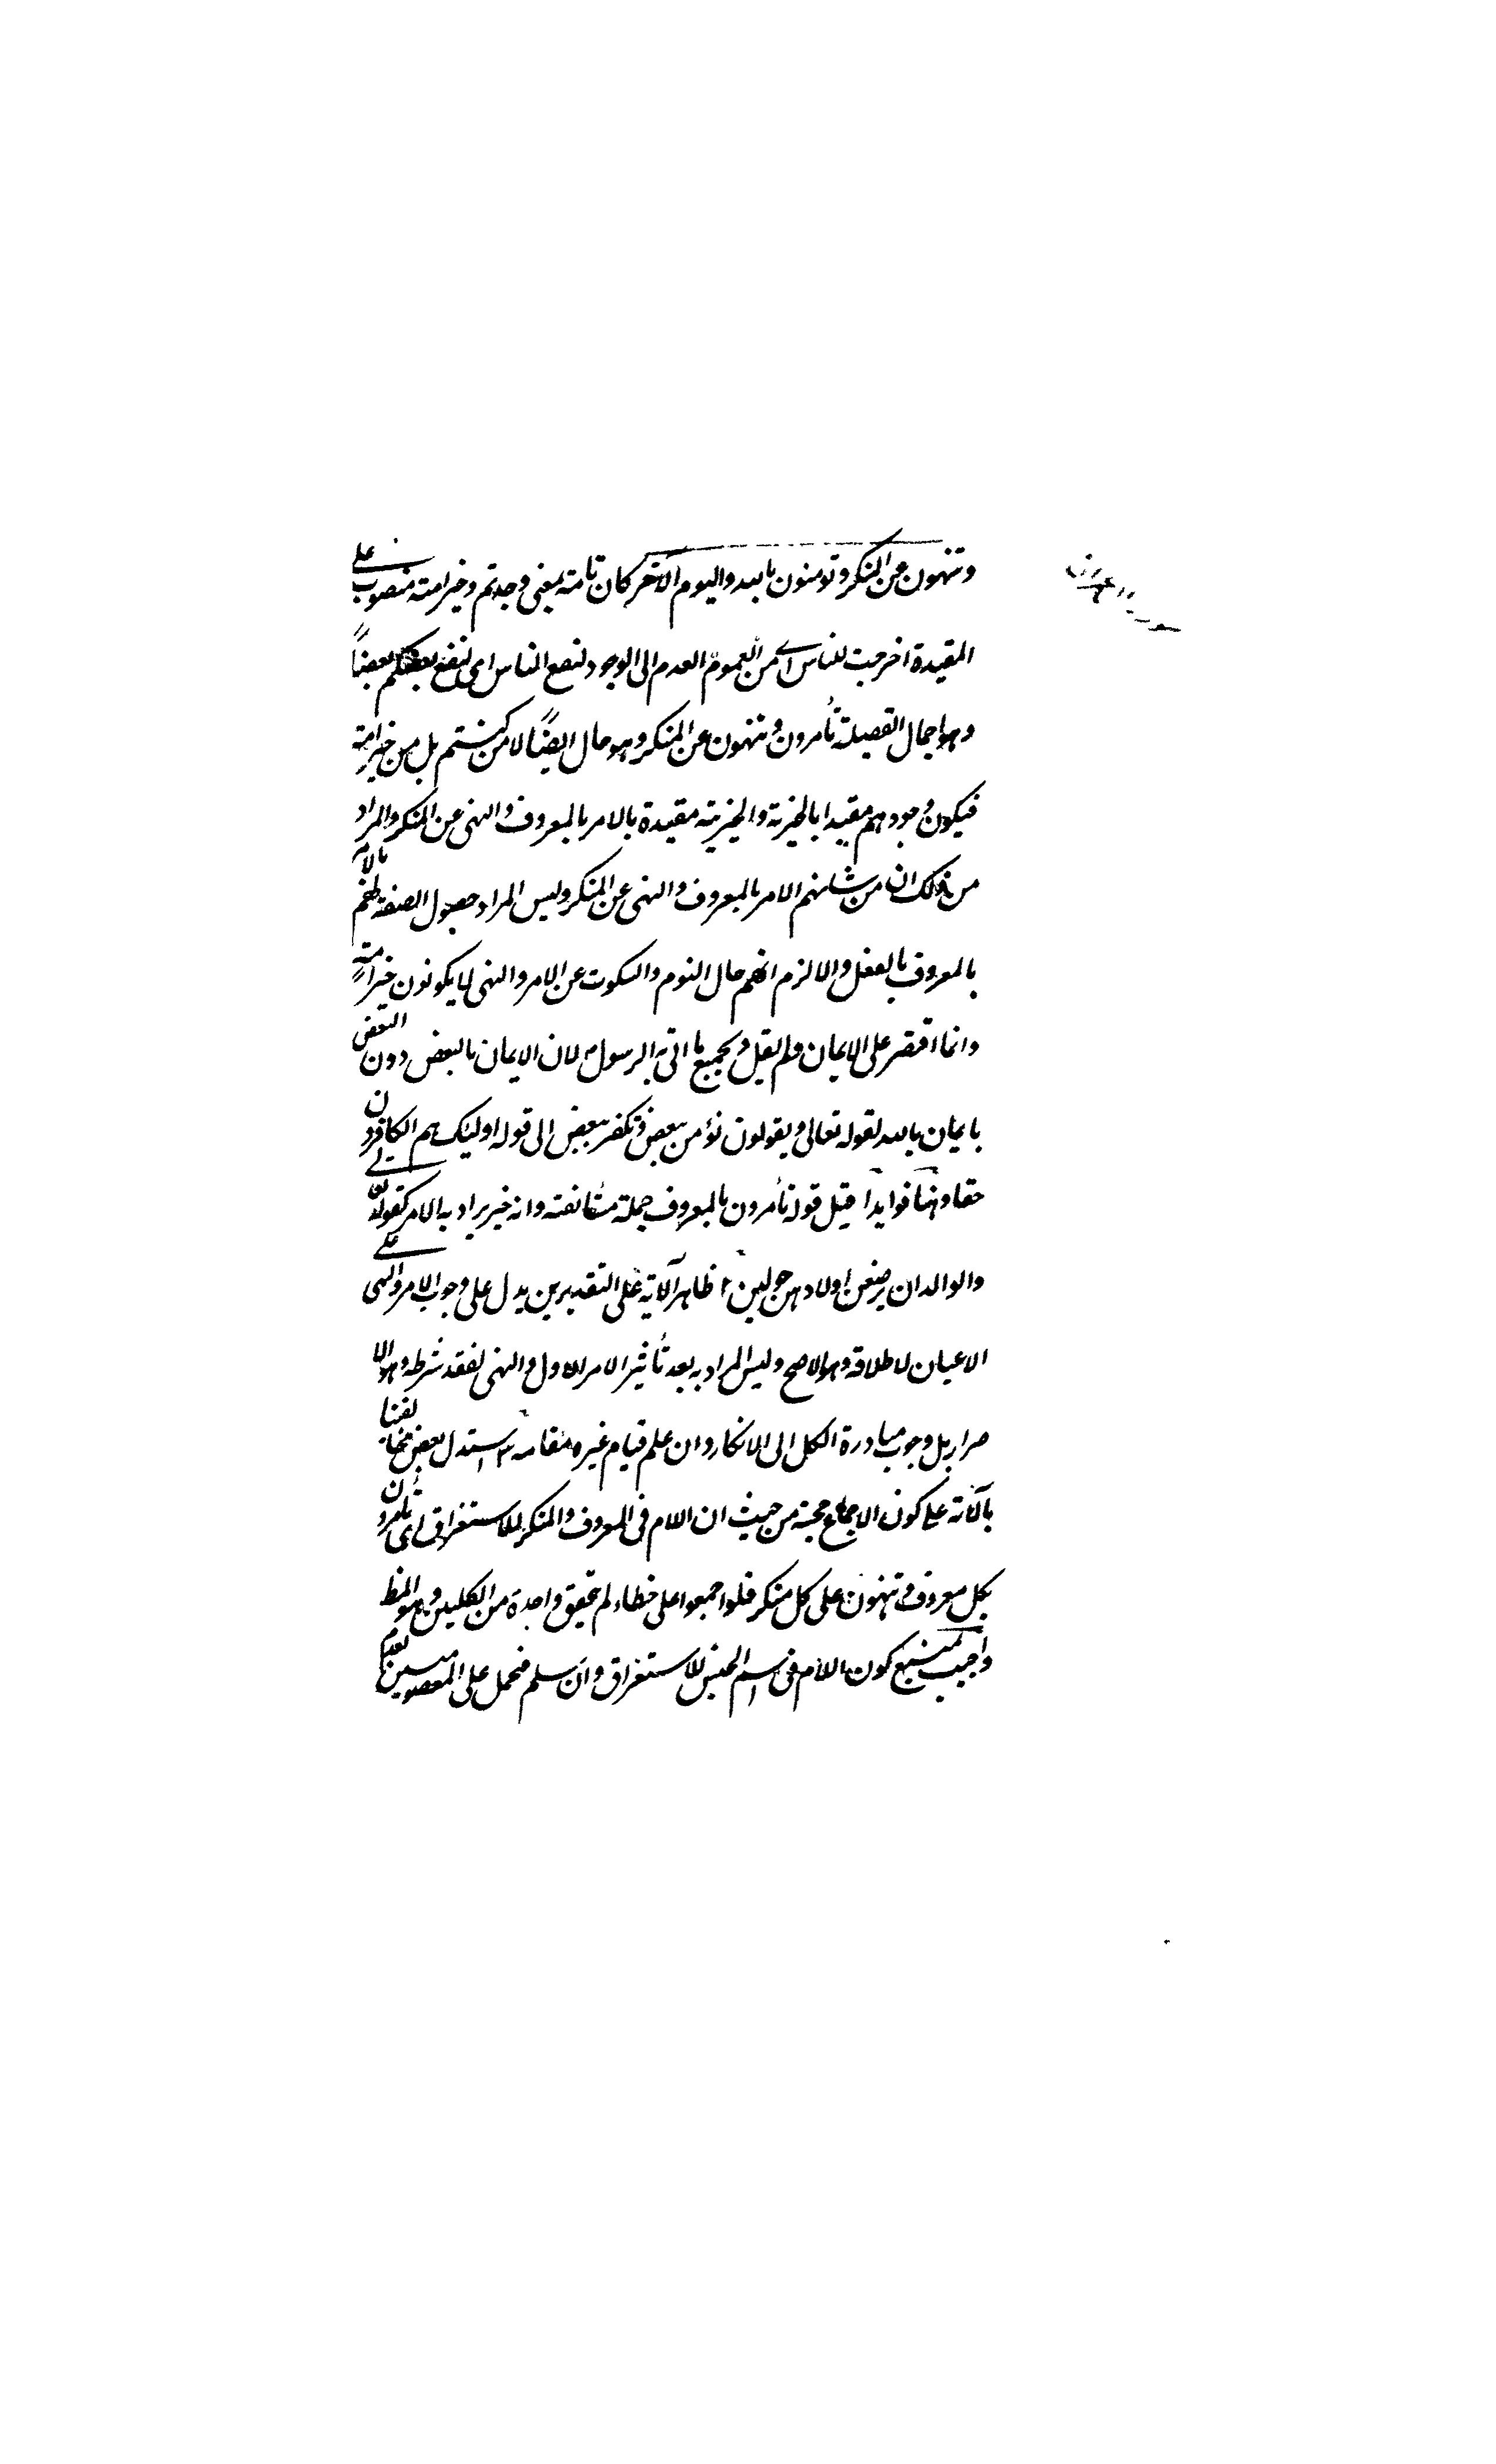 وتنهون عن المنكر وتومنون بالله واليوم الآخر كان تامة بمعنى وجدتم وخير امة منصوب على
المقيدة اخرجت للناس اى من العموم العدم الى الوجود لنفع الناس اى لنفع بعضكم بعضاً
وهو اجمال تفصيله تأمرون وتنهون عن المنكر وهو حال ايضاً لا من كنتم بل من خير امة
فيكون وجودهم مقيدا بالخيرية والخيرية مقيدة بالامر بالمعروف والنهى عن المنكر والمراد
من ذلك ان من شانهم الامر بالمعروف والنهى عن المنكر وليس المراد حصول الصفة لهم بالامر
بالمعروف بالفعل والا لزم انهم حال النوم والسكوت عن الامر والنهى لا يكونون خير امة
وانما اقتصر على الايمان ولم يقل وبجميع ما اتى به الرسول لان الايمان بالبعض دون البعض
بايمان بالله لقوله تعالى ويقولون نؤمن ببعض ونكفر ببعض الى قوله اوليك هم الكافرون
حقا وهنا فوايد ا قيل قوله تأمرون بالمعروف جملة مستانفة وانه خبر يراد به الامر كقوله تعالى
والوالدات يرضعن اولادهن حولين ٢ ظاهر الآية على التقديرين يدل على وجوب الامر والنهى على
الاعيان لاطلاقه وهو الاصح وليس المراد به بعد تأثير الامر الاول والنهى لفقد شرطه وهو الا
صرار بل وجوب مبادرة الكل الى الانكار وان علم قيام غيره مقامه ٣ استدل بعض مخالفينا
بالآية على كون الاجماع حجة من حيث ان اللام فى المعروف والمنكر للاستغراق اى تأمرون
بكل معروف وتنهون على كل منكر فلو اجمعوا على خطاء لم تحقق واحدة من الكليتين وهو المط
واجيب بمنع كون اللام فى اسم الجنس للاستغراق وان سلم فنحمل على المعصومين